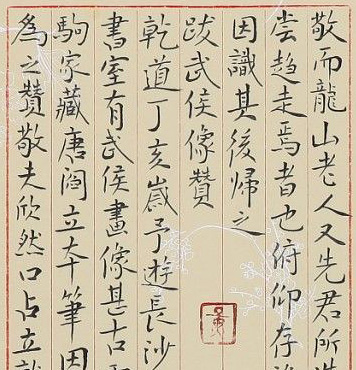 敬而龍山老人又先君所
尝趋走焉者也俯仰存
因識其後歸之
跋武侯像贊
乾道丁亥歲予遊長沙
書室有武侯畫像甚古
駒家藏唐閻立本筆因
為之贊敬夫欣然口占立